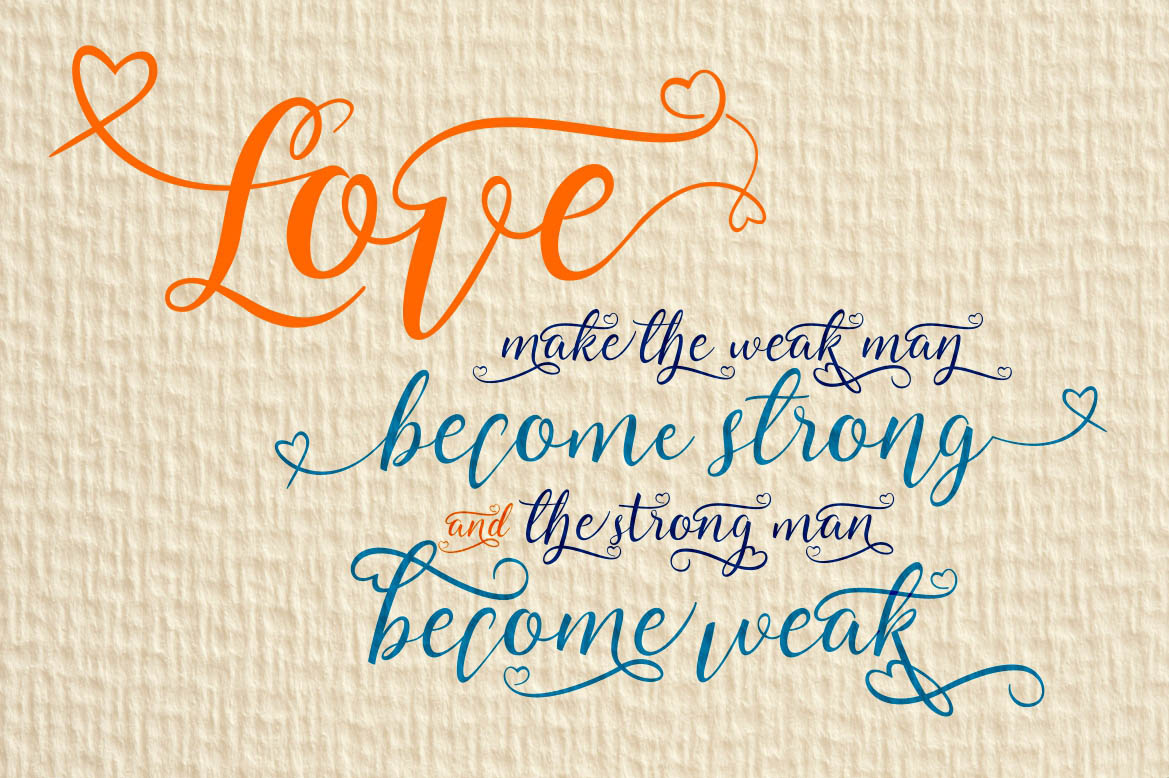 Love
make the weak man
become strong
and the strong man
become weak